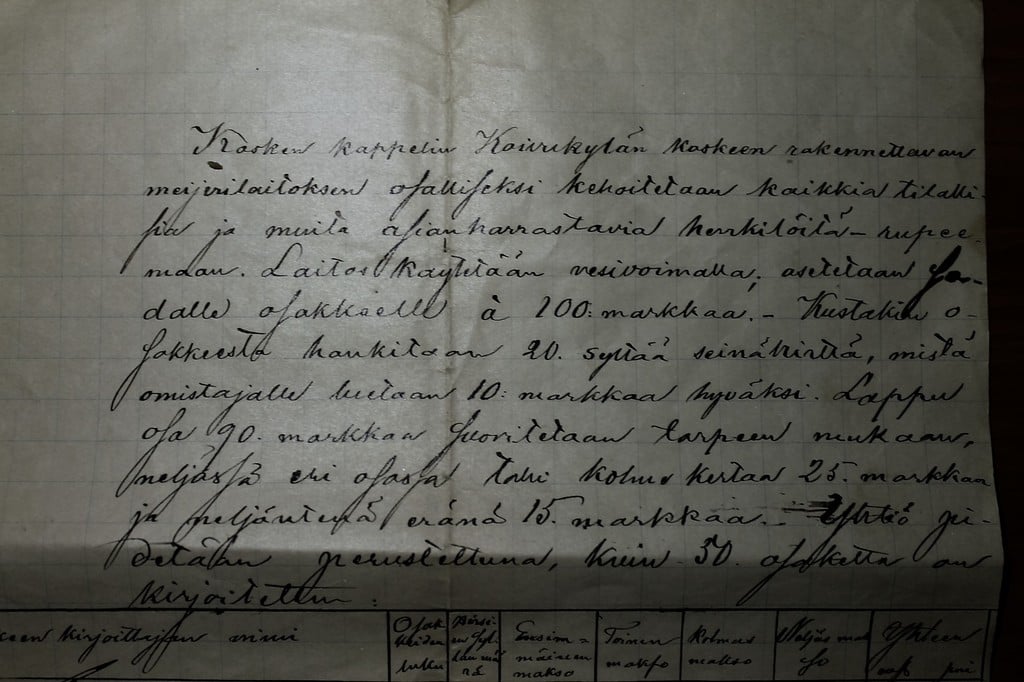 Kosken kappelin Koivukylän koskeen rakennettavan
meijerilaitoksen osalliseksi kehoitetaan kaikkia tilalli-
sia ja muita asianharrastavia henkilöitä – rupee-
maan. Laitos käytetään vesivoimalla, asetetaan sa-
dalle osakkeelle à 100: markkaa. – Kustakin o-
sakkeesta hankitaan 20. syltää seinähirttä, mistä
omistajalle luetaan 10: markkaa hyväksi. Loppu
osa 90. markkaa suoritetaan tarpeen mukaan,
neljässä eri osassa kertaa 25. markkaa
ja neljäntenä eränä 15. markkaa. – Yhtiö pi-
detään perustettuna, kuin 50. osaketta on
kirjoitettu:
kirjoittajan nimi
Osak
keiden
luku
Ensim=
mäinen
makso
Toinen
makso
Kolmas
makso
Neljäs mak
so
Yhteen